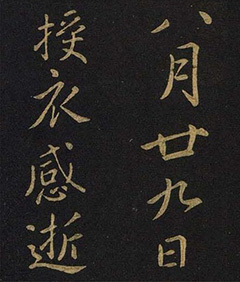 八月廿九日
授衣感逝